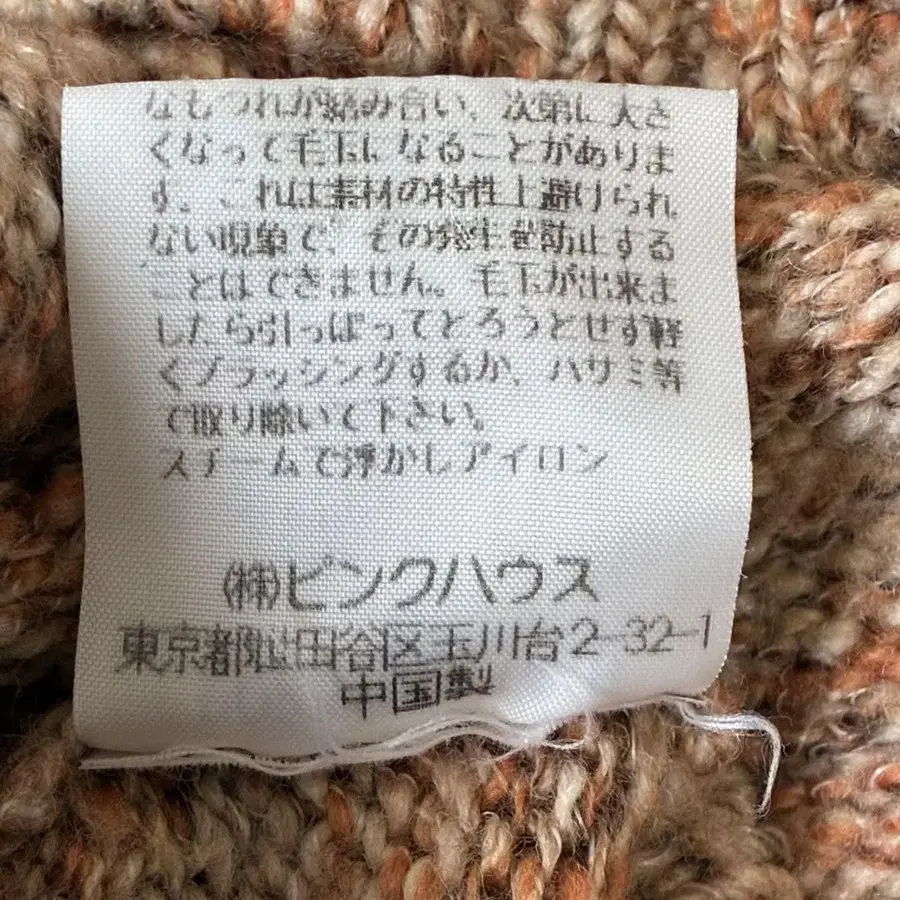 なもつれが絡み合い、次第に大き
くなって毛玉になることがありま
す。これは素材の特性上避けられ
ない現象で、その発生を防止する
ことはできません。毛玉が出来ま
したら引っぱってとろうとせず軽
くブラッシングするか、ハサミ等
で取り除いて下さい。
スチームで浮かしアイロン
㈱ピンクハウス
東京都世田谷区玉川台2-32-1
中国製